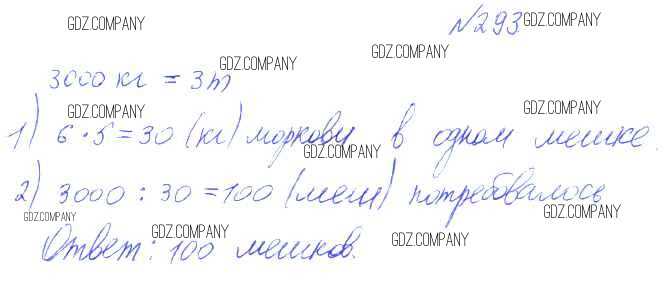 GDZ.COMPANY №293. GDZ.COMPANY
GDZ.COMPANY GDZ.COMPANY
3000 кг = 3т
GDZ.COMPANY GDZ.COMPANY
1) 6 · 5 = 30 (кг) моркови в одном мешке.
GDZ.COMPANY
2) 3000 : 30 = 100 (меш) потребовалось
GDZ.COMPANY GDZ.COMPANY
Ответ: 100 мешков.
GDZ.COMPANY GDZ.COMPANY